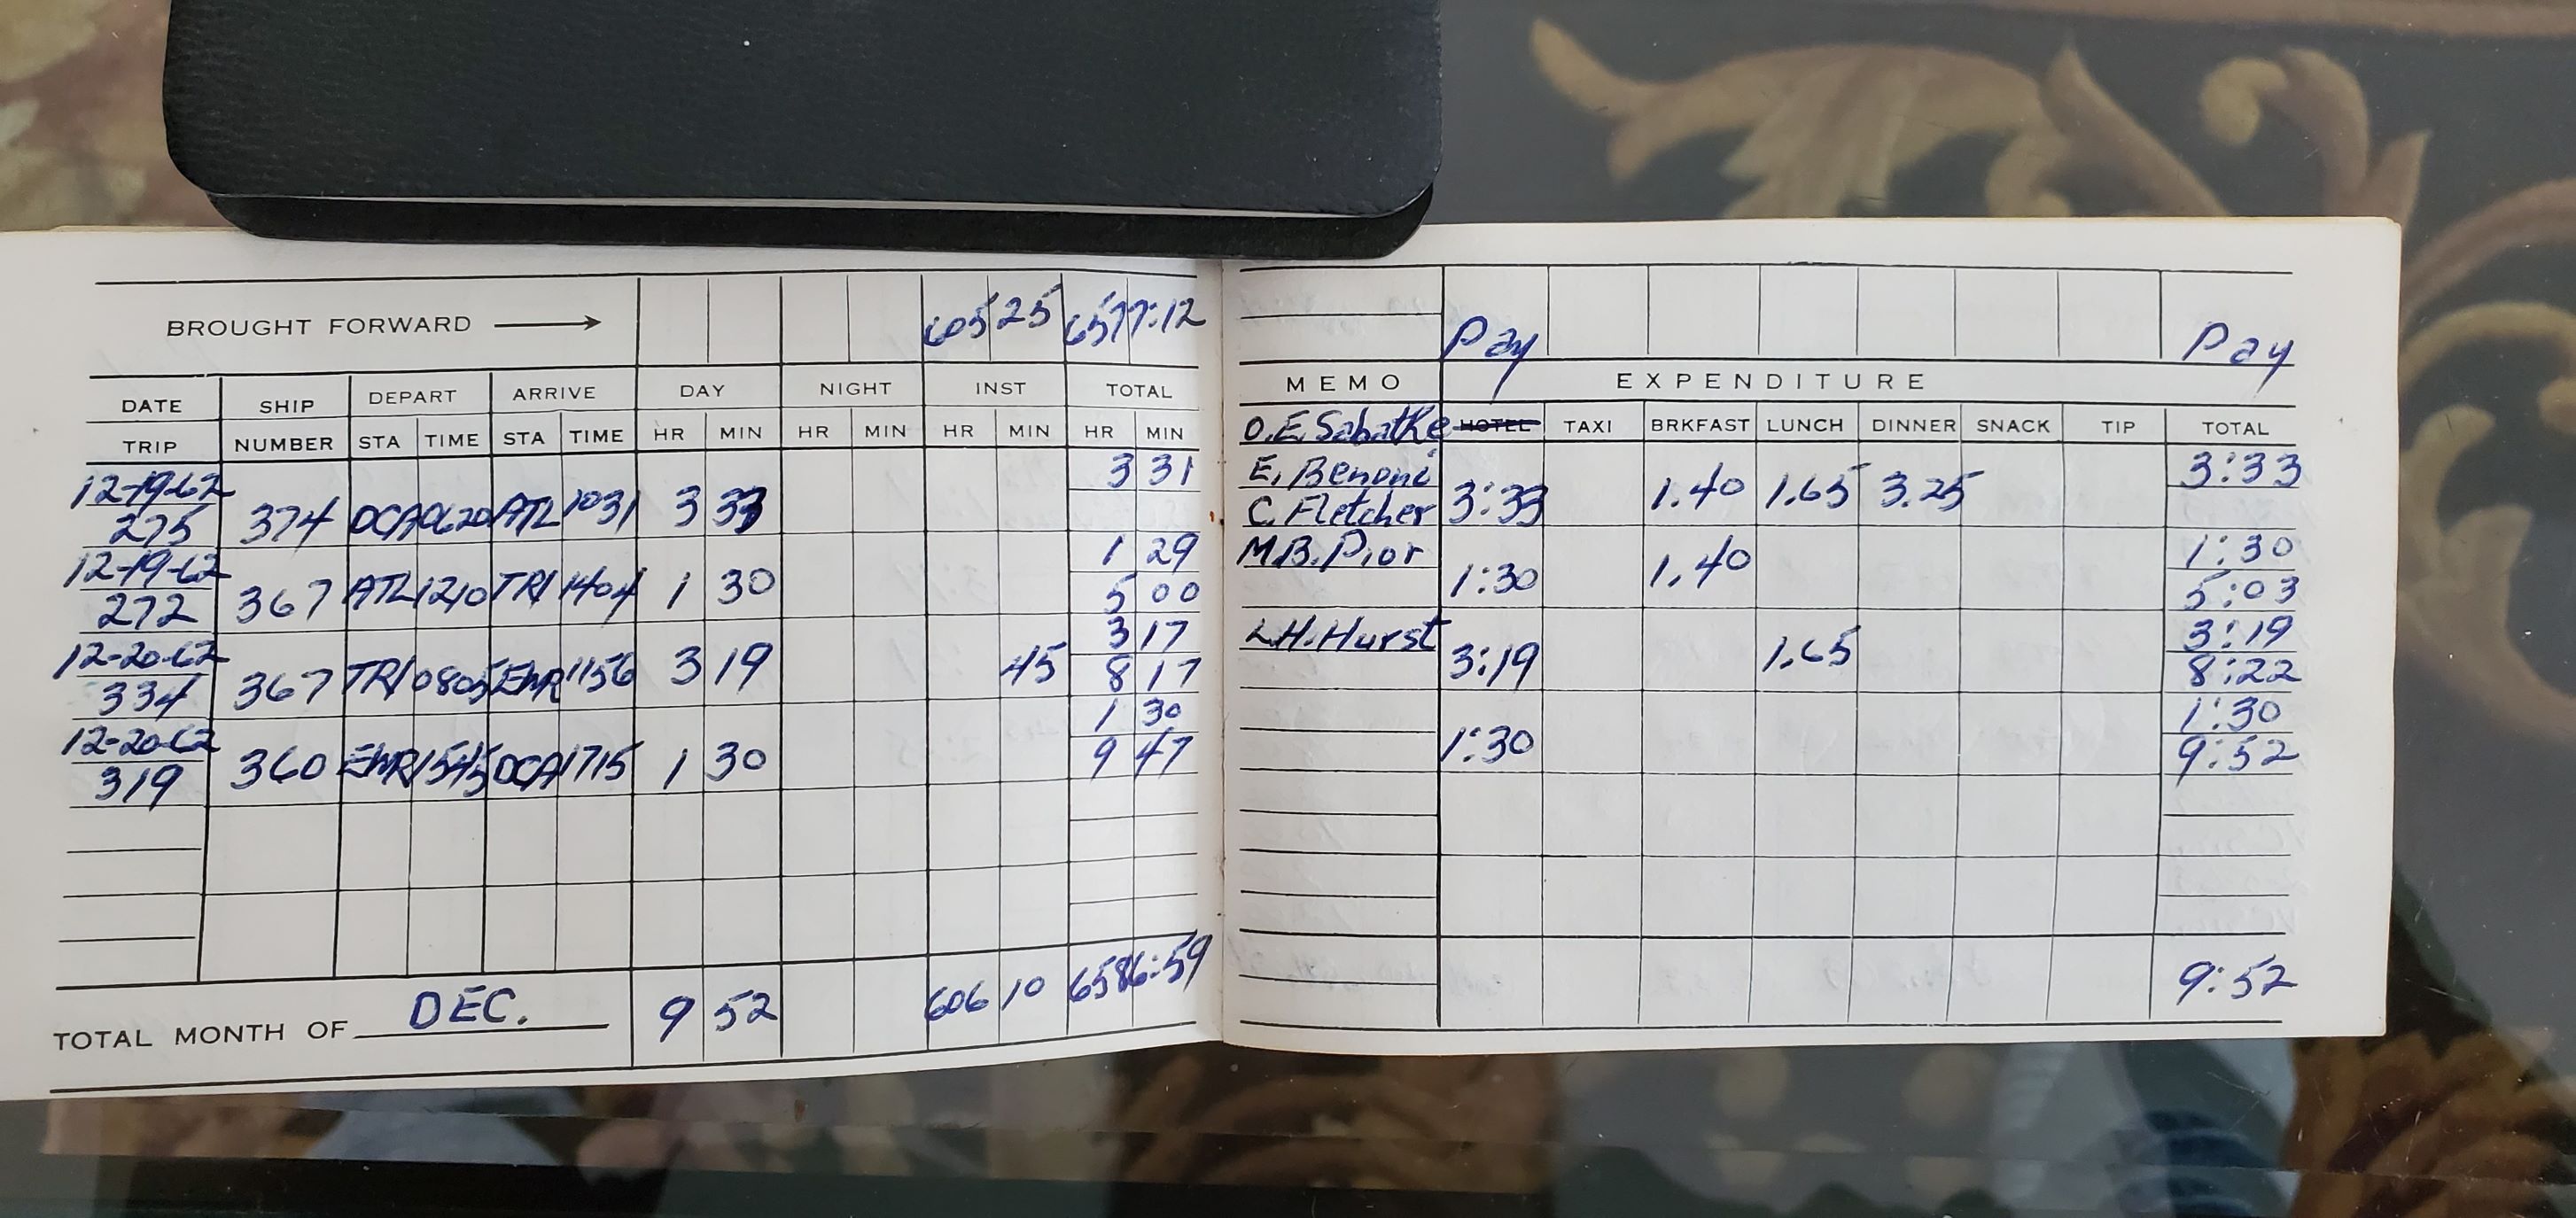 BROUGHT FORWARD 605 25 6577:12
DATE SHIP DEPART ARRIVE DAY NIGHT INST TOTAL
TRIP NUMBER STA TIME STA TIME HR MIN HR MIN HR MIN HR MIN
12-19-62 3 31
275 374 DCA 0620 ATL 1031 3 33
12-19-62 1 29
272 367 ATL 1210 TRI 1404 1 30 5 00
12-20-62 3 17
334 367 TRI 0805 EWR 1156 3 19 45 8 17
12-20-62 1 30
319 360 EWR 1545 DCA 1715 1 30 9 47
TOTAL MONTH OF DEC. 9 52 606 10 6586:59
Pay Pay
MEMO EXPENDITURE
O.E. Sabatke HOTEL TAXI BRKFAST LUNCH DINNER SNACK TIP TOTAL
E. Benoni 3:33
C. Fletcher 3:33 1.40 1.65 3.25
M.B. Pior 1:30
1:30 1.40 5:03
L.H. Hurst 3:19
3:19 1.65 8:22
1:30
1:30 9:52
9:52